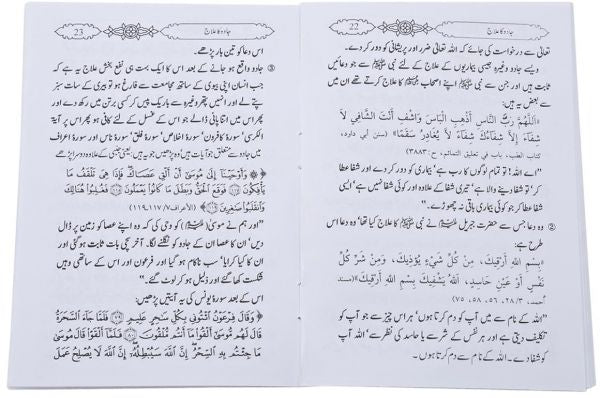 جادو کا علاج
22
تعالیٰ سے درخواست کی جائے کہ اللہ تعالیٰ ضرر اور پریشانی کو دور کر دے۔
ویسے جادو وغیرہ جیسی بیماریوں کے علاج کے لئے نبی ﷺ سے جو دعائیں
ثابت ہیں اور جن سے نبی ﷺ اپنے اصحاب کا علاج کرتے تھے ان میں
سے بعض یہ ہیں:
«اَللّٰهُمَّ رَبَّ النَّاسِ أَذْهِبِ الْبَاسَ وَاشْفِ أَنْتَ الشَّافِي لَا
شِفَاءَ إِلَّا شِفَاؤُكَ شِفَاءً لَا يُغَادِرُ سَقَمًا» (سنن أبي داود،
كتاب الطب، باب في تعليق التمائم، ح: ٣٨٨٣)
"اے اللہ! اے تمام لوگوں کا رب ہے، بیماری کو دور کر دے اور شفا عطا
کر تو شفا دینے والا ہے، تیری شفا کے علاوہ اور کوئی شفا نہیں ہے، ایسی
شفا عطا کر جو کوئی بیماری باقی نہ چھوڑے۔"
② وہ دعا جس سے حضرت جبریل نے نبی ﷺ کا علاج کیا تھا، وہ دعا اس
طرح ہے:
«بِسْمِ اللهِ أَرْقِيْكَ، مِنْ كُلِّ شَيْءٍ يُؤْذِيْكَ، وَمِنْ شَرِّ كُلِّ
نَفْسٍ أَوْ عَيْنِ حَاسِدٍ، اَللهُ يَشْفِيْكَ بِسْمِ اللهِ أَرْقِيْكَ» (مسند
أحمد، ٢٨/٣، ٥٦، ٥٨، ٧٥)
"اللہ کے نام سے میں آپ کو دم کرتا ہوں، ہر اس چیز سے جو آپ کو
تکلیف دیتی ہے اور ہر نفس کے شر سے یا حاسد کی نظر سے، اللہ آپ
کو شفا دے۔ اللہ کے نام سے دم کرتا ہوں۔
جادو کا علاج
23
اس دعا کو تین بار پڑھے۔
③ جادو واقع ہو جانے کے بعد اس کا ایک بہت ہی نفع بخش علاج یہ ہے کہ
جب انسان اپنی بیوی کے ساتھ مجامعت سے فارغ ہو تو بیری کے سات سبز
پتے لے اور انہیں پتھر وغیرہ سے باریک پیس کر کسی برتن میں رکھ دے اور
اس میں اتنا پانی ڈالے جو اس کے غسل کے لئے کافی ہو پھر اس پر آیۃ
الکرسی، سورۃ کافرون، سورۃ اخلاص، سورۃ فلق، سورۃ ناس اور سورۃ اعراف
میں سے متعلق جو آیات ہیں وہ پڑھیں جو یہ ہیں:
﴿ وَأَوْحَيْنَا إِلَىٰ مُوسَىٰ أَنْ أَلْقِ عَصَاكَ ۖ فَإِذَا هِيَ تَلْقَفُ مَا
يَأْفِكُونَ ۝ فَوَقَعَ الْحَقُّ وَبَطَلَ مَا كَانُوا يَعْمَلُونَ ۝ فَغُلِبُوا هُنَالِكَ
وَانقَلَبُوا صَاغِرِينَ ۝ ﴾ (الأعراف ٧/١١٧-١١٩)
"اور ہم نے موسیٰ (ﷺ) کو وحی کی کہ وہ اپنے عصا کو زمین پر ڈال
دیں، ان کا عصا ان کے جادو کو نگلنے لگا۔ آخر سچی بات ثابت ہو گئی اور
ان کا کیا کرایا، سب ناکام ہو گیا اور فرعون اور اس کے ساتھی وہیں
شکست کھا گئے اور ذلیل ہو کر لوٹ گئے۔"
اس کے بعد سورۃ یونس کی یہ آیتیں پڑھیں:
﴿ وَقَالَ فِرْعَوْنُ ائْتُونِي بِكُلِّ سَاحِرٍ عَلِيمٍ ۝ فَلَمَّا جَاءَ السَّحَرَةُ
قَالَ لَهُم مُّوسَىٰ أَلْقُوا مَا أَنتُم مُّلْقُونَ ۝ فَلَمَّا أَلْقَوْا قَالَ مُوسَىٰ
مَا جِئْتُم بِهِ السِّحْرُ ۖ إِنَّ اللَّهَ سَيُبْطِلُهُ ۖ إِنَّ اللَّهَ لَا يُصْلِحُ عَمَلَ